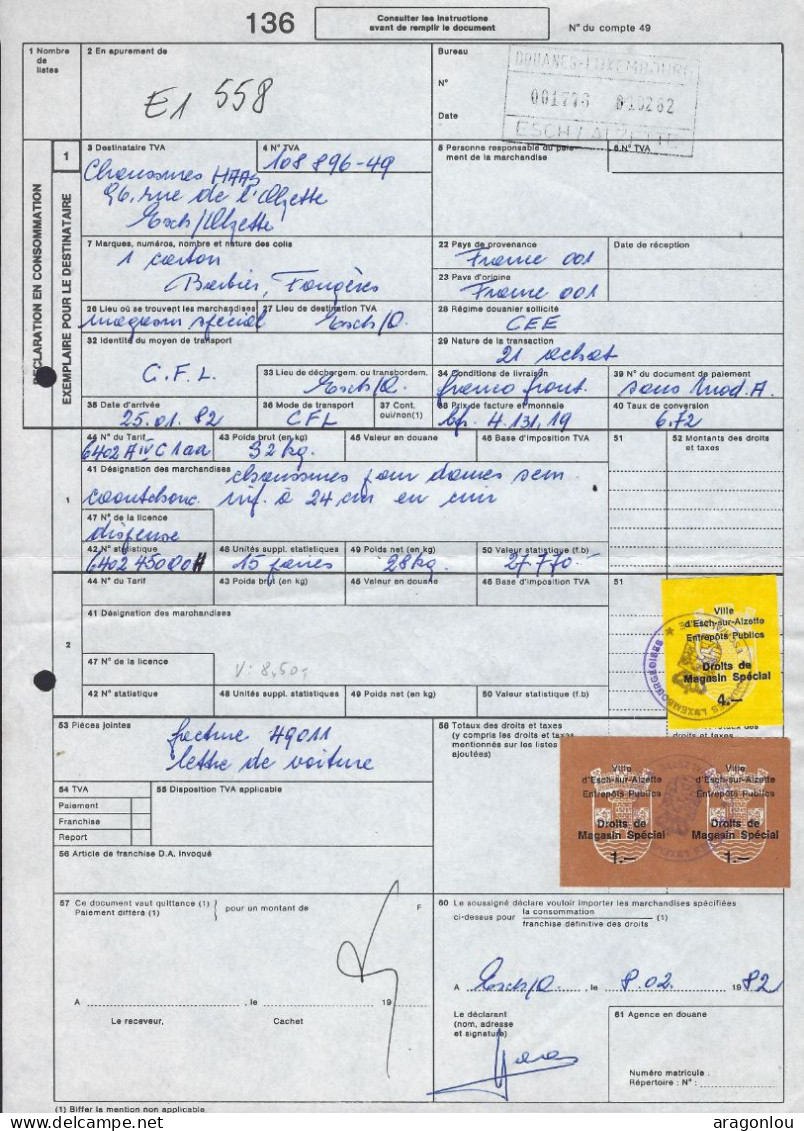 136
Consulter les instructions
avant de remplir le document
N° du compte 49
1 Nombre
de
listes
2 En apurement de
E1 558
Bureau
N°
Date
DOUANES-LUXEMBOURG
001776 010282
ESCH/ALZETTE
DECLARATION EN CONSOMMATION
EXEMPLAIRE POUR LE DESTINATAIRE
1
3 Destinataire TVA
4 N° TVA
108 896-49
Chaussures HAAS
96, rue de l'Alzette
Esch/Alzette
5 Personne responsable du paie-
ment de la marchandise
6 N° TVA
7 Marques, numéros, nombre et nature des colis
1 carton
Barbier, Fougères
22 Pays de provenance
France 001
Date de réception
23 Pays d'origine
France 001
26 Lieu où se trouvent les marchandises
magasin spécial
27 Lieu de destination TVA
Esch/A.
28 Régime douanier sollicité
CEE
32 Identité du moyen de transport
C.F.L.
29 Nature de la transaction
21 achat
33 Lieu de déchargem. ou transbordem.
Esch/A.
34 Conditions de livraison
franco front.
39 N° du document de paiement
sans mod. A.
35 Date d'arrivée
25.01.82
36 Mode de transport
CFL
37 Cont.
oui/non(1)
38 Prix de facture et monnaie
bfr. 4.131,19
40 Taux de conversion
6.72
44 N° du Tarif
6402 A IV C 1 aa
43 Poids brut (en kg)
32 kg.
45 Valeur en douane
46 Base d'imposition TVA
51
52 Montants des droits
et taxes
1
41 Désignation des marchandises
chaussures pour dames sem.
caoutchouc. inf. à 24 cm en cuir
47 N° de la licence
dispense
42 N° statistique
6402 45000 H
48 Unités suppl. statistiques
15 paires
49 Poids net (en kg)
28 kg.
50 Valeur statistique (f.b)
27.770.-
44 N° du Tarif
43 Poids brut (en kg)
45 Valeur en douane
46 Base d'imposition TVA
51
2
41 Désignation des marchandises
47 N° de la licence
V: 8,50
42 N° statistique
48 Unités suppl. statistiques
49 Poids net (en kg)
50 Valeur statistique (f.b)
Ville
d'Esch-sur-Alzette
Entrepôts Publics
Droits de
Magasin Spécial
4.—
53 Pièces jointes
facture 49011
lettre de voiture
58 Totaux des droits et taxes
(y compris les droits et taxes
mentionnés sur les listes
ajoutées)
droits
et taxes
54 TVA
Paiement
Franchise
Report
55 Disposition TVA applicable
56 Article de franchise D.A. Invoqué
Ville
d'Esch-sur-Alzette
Entrepôts Publics
Droits de
Magasin Spécial
1.—
Ville
d'Esch-sur-Alzette
Entrepôts Publics
Droits de
Magasin Spécial
1.—
57 Ce document vaut quittance (1)
Paiement différé (1)
pour un montant de
F
A , le 19
Le receveur,
Cachet
60 Le soussigné déclare vouloir importer les marchandises spécifiées
ci-dessus pour la consommation (1)
franchise définitive des droits
A Esch/A. , le 8.02. 1982
Le déclarant
(nom, adresse
et signature)
61 Agence en douane
Numéro matricule :
Répertoire : N° :
(1) Biffer la mention non applicable.
aragonlou